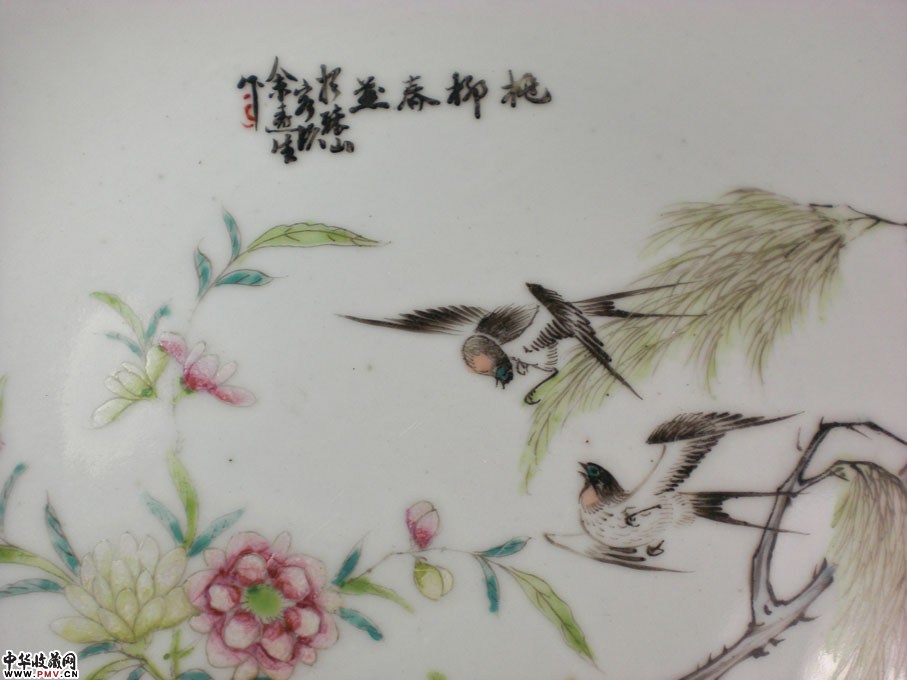 桃柳春燕
於珠山
客次
余春生
作
中华收藏网
WWW.PMV.CN